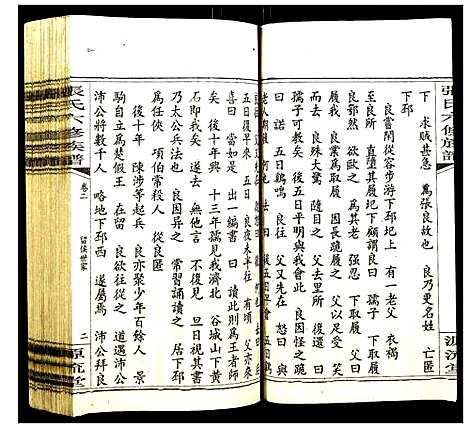 張氏六修族譜
源流堂
下　求賊甚急　為張良故也　良乃更名姓　亡匿
下邳
良嘗閒從容步游下邳圯上　有一老父　衣褐
至良所　直墮其履圯下顧謂良曰　孺子　下取履
良鄂然　欲歐之　為其老　強忍　下取履　父曰
履我　良業為取履　因長跪履之　父以足受　笑
而去　良殊大驚　隨目之　父去里所　復還　曰
孺子可教矣　後五日平明與我會此　良因怪之跪
曰諾　五日鷄鳴　良往　父又先在　怒曰　與
後五日早會　五
五日復早來　五日　良夜未半往　有頃　父亦來
喜曰　當如是　出一編書　曰　讀此則為王者師
矣　後十年興　十三年孺見我濟北　谷城山下黃
石即我矣　遂去　無他言　不復見　旦日視其書
乃太公兵法也　良因異之　常習誦讀之　居下邳
為任俠　項伯殺人　從良匿
後十年　陳涉等起兵　良亦聚少年百餘人　景
駒自立為楚假王　在留　良欲往從之　道遇沛公
沛公將數千人　略地下邳西　遂屬焉　沛公拜良
張氏六修族譜　卷二　留侯世家　二　源流堂